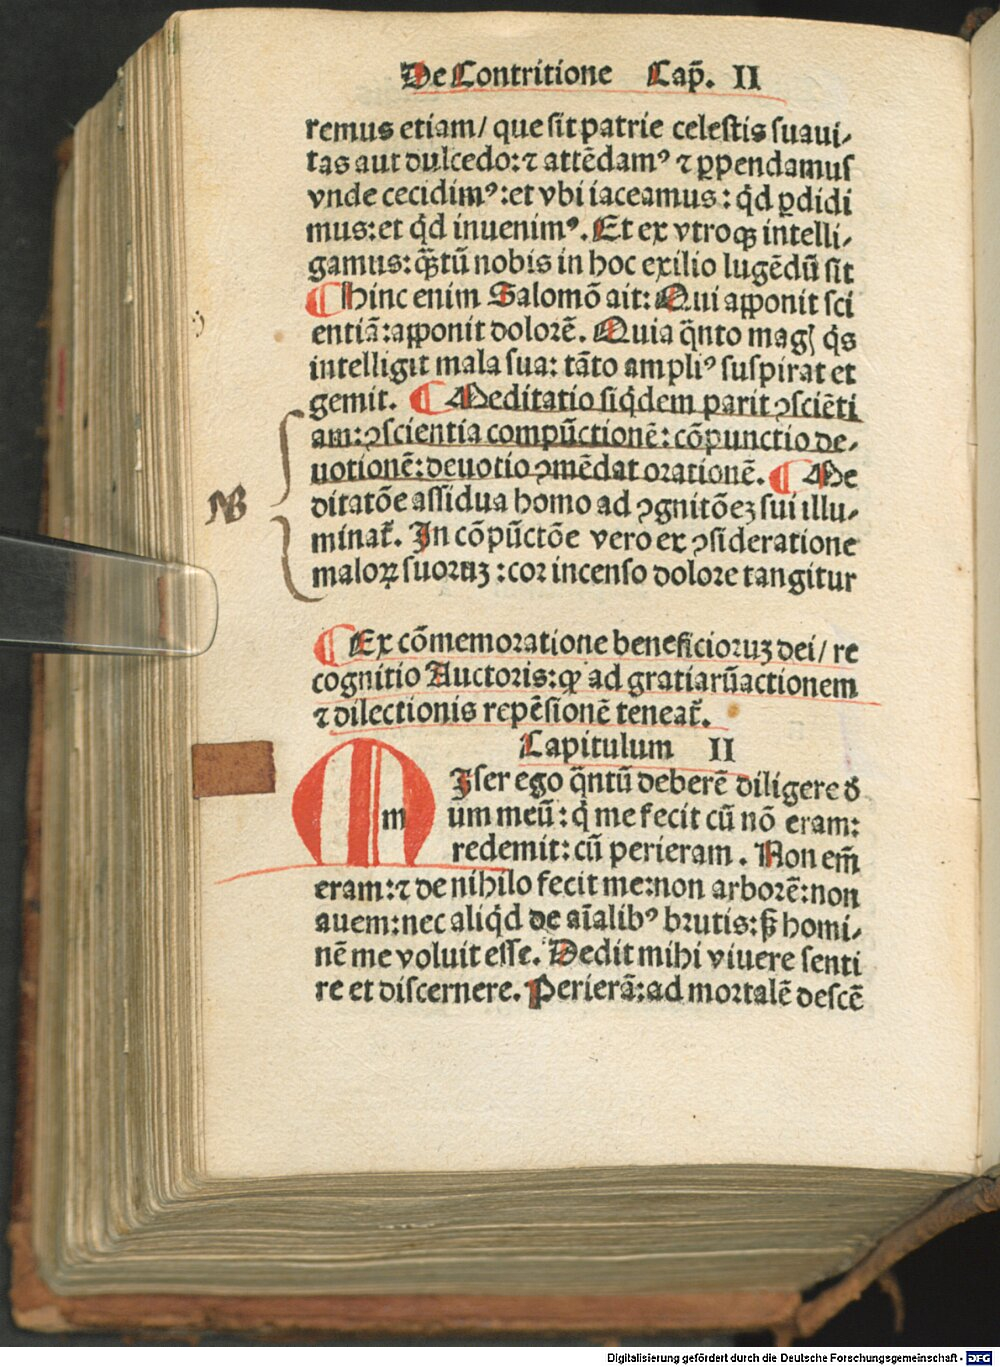 De Contritione Cap̃. II
remus etiam/ que sit patrie celestis suaui-
tas aut dulcedo: ⁊ attẽdamꝰ ⁊ ꝑpendamus
vnde cecidimꝰ: et vbi iaceamus: qͥd ꝑdidi
mus: et qͥd inuenimꝰ. Et ex vtroqꝫ intelli-
gamus: q̃ꝫtũ nobis in hoc exilio lugẽdũ sit
¶ hinc enim Salomõ ait: Qui apponit sci
entiã: apponit dolorẽ. Quia q̃nto magꝭ qͥs
intelligit mala sua: tãto ampliꝰ suspirat et
gemit. ¶ Meditatio siqͥdem parit ꝯsciẽti
am: ꝯscientia compũctionẽ: cõpunctio de-
uotionẽ: deuotio ꝯmẽdat orationẽ. ¶ Me
NB
ditatõe assidua homo ad ꝯgnitõeꝫ sui illu-
minat᷑. In cõpũctõe vero ex ꝯsideratione
maloꝝ suoruꝫ: cor incenso dolore tangitur
¶ Ex cõmemoratione beneficioruꝫ dei/ re
cognitio Auctoris: ꝙ ad gratiarũactionem
⁊ dilectionis repẽsionẽ teneat᷑.
Capitulum II
M m Iser ego q̃ntũ deberẽ diligere dͤ
um meũ: qͥ me fecit cũ nõ eram:
redemit: cũ perieram. Non em̃
eram: ⁊ de nihilo fecit me: non arborẽ: non
auem: nec aliqͥd de aĩalibꝰ brutis: sꝫ homi-
nẽ me voluit esse. Dedit mihi viuere senti
re et discernere. Perierã: ad mortalẽ descẽ
Digitalisierung gefördert durch die Deutsche Forschungsgemeinschaft - DFG